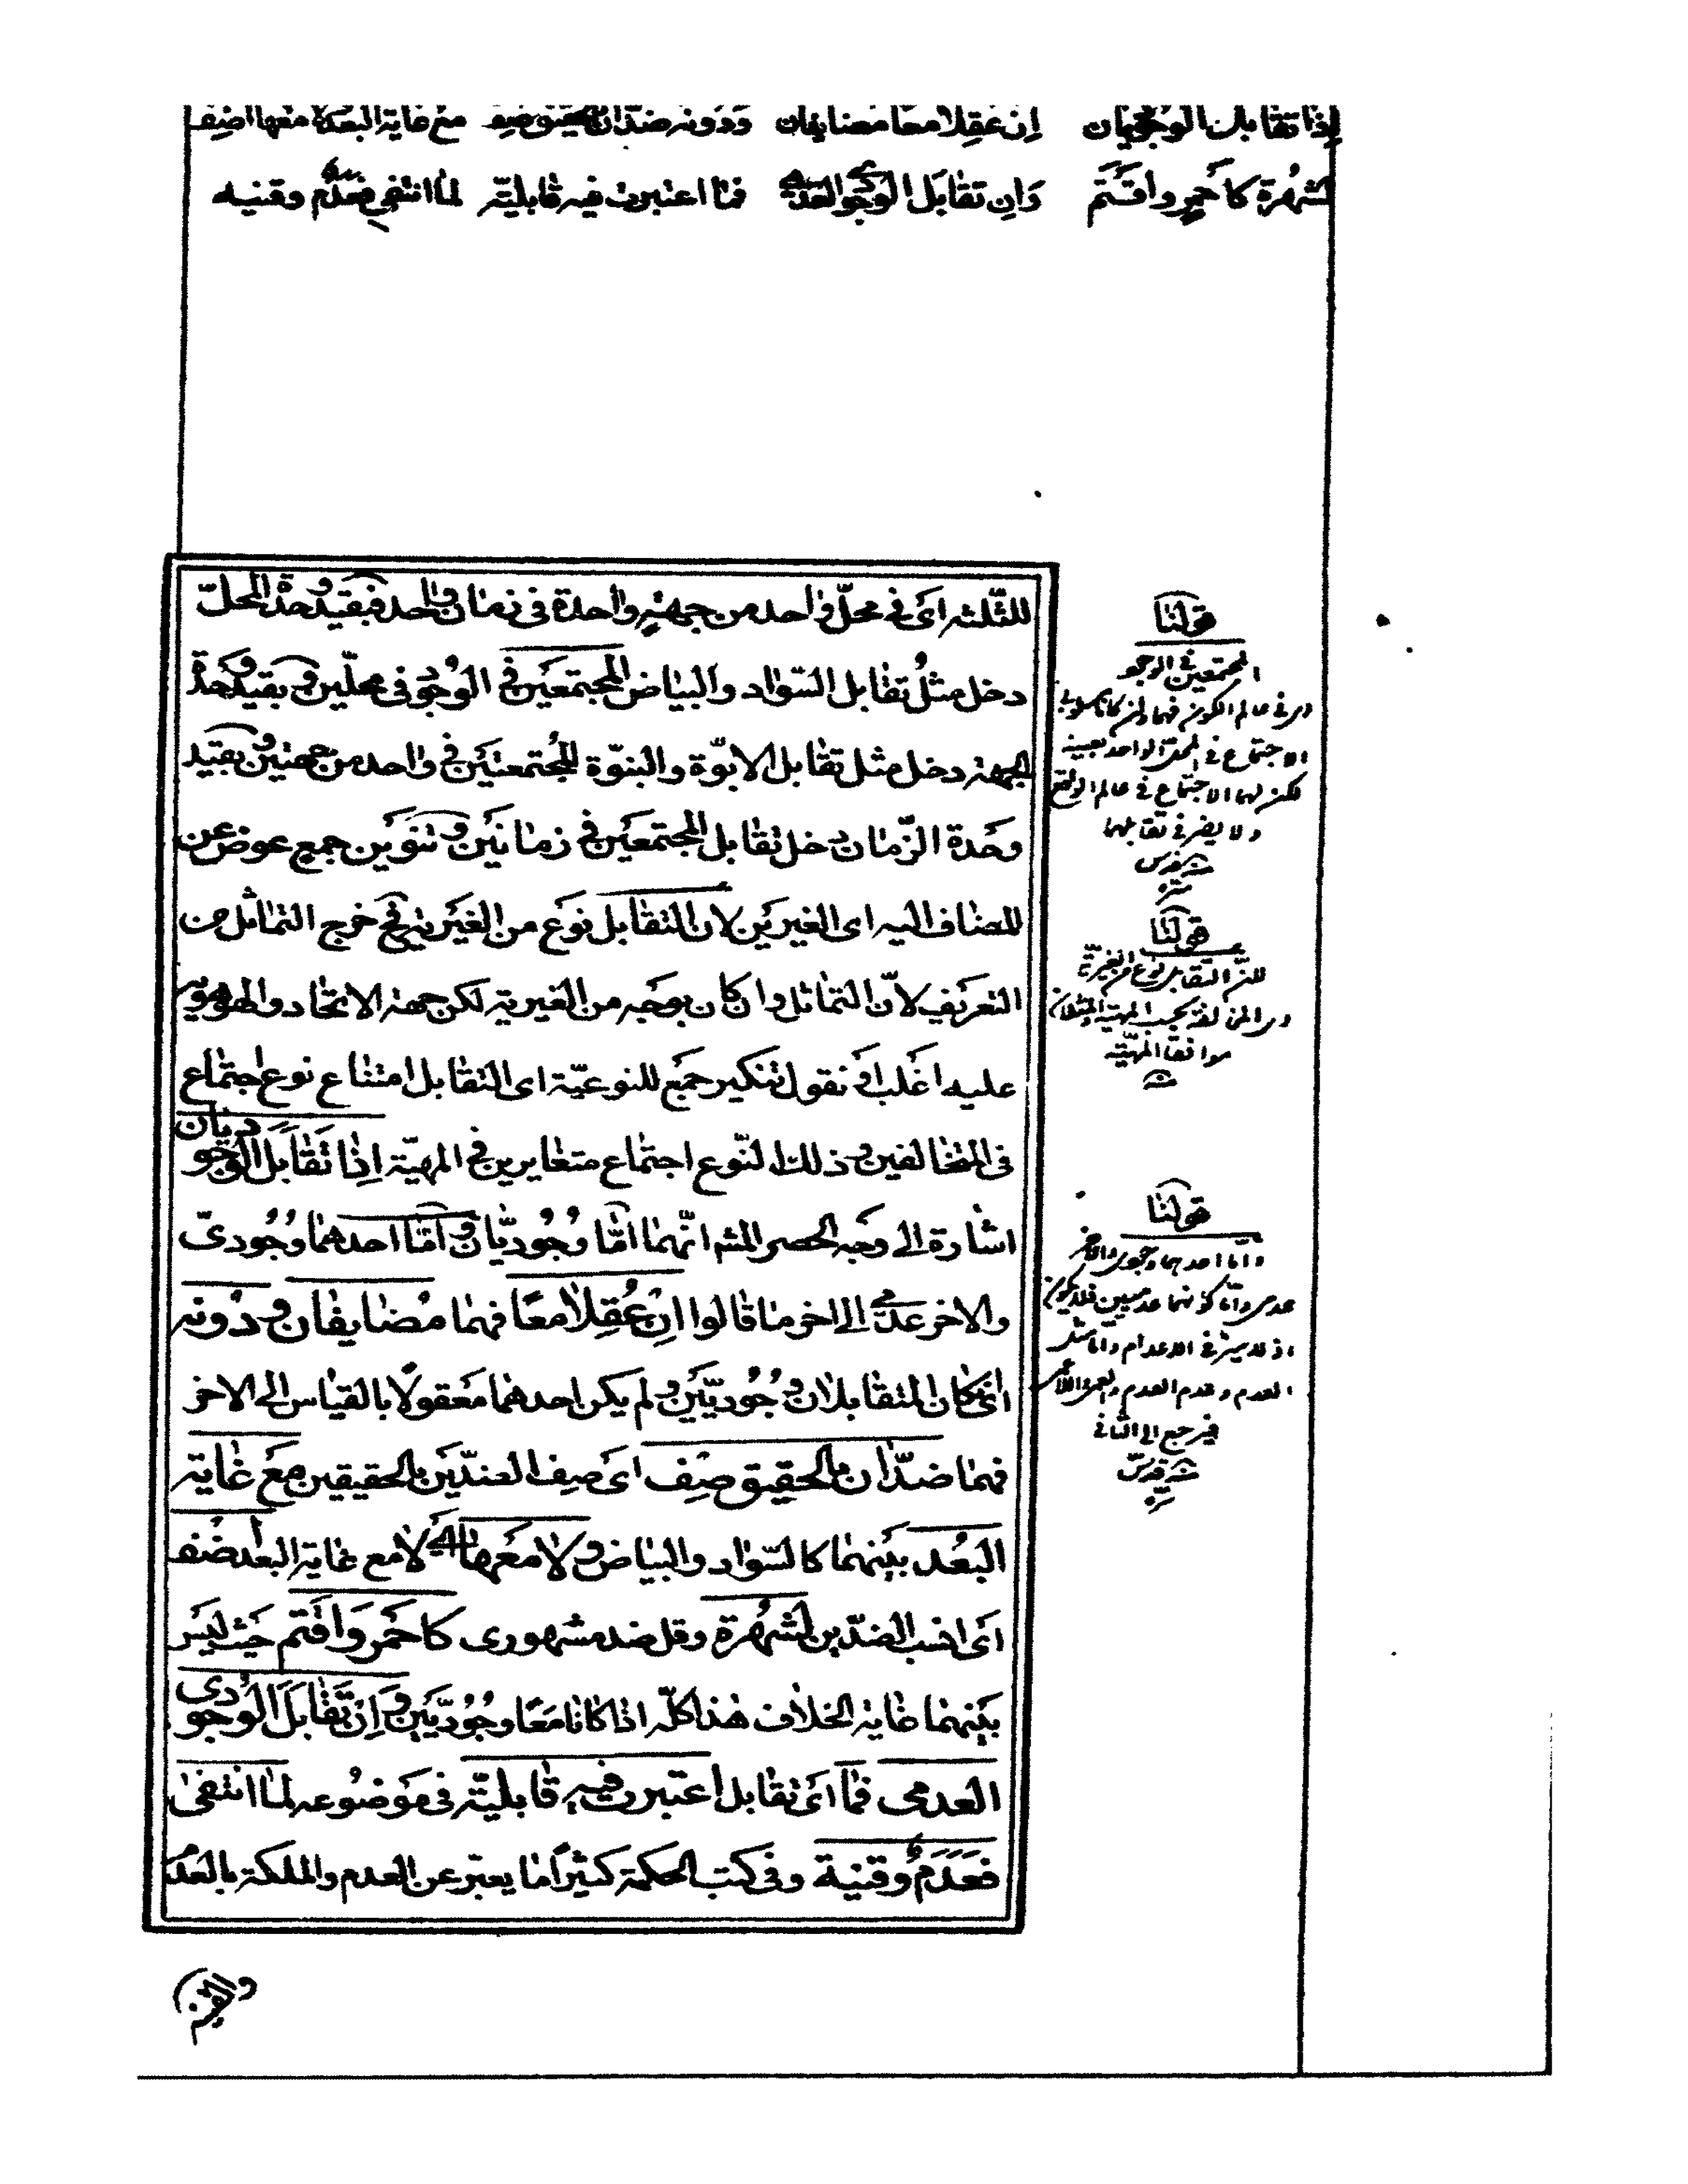 إذا تقابل الوجوديان إن عقلا معا مضايفان ودونه ضدان بالحقيق صف مع غاية البعد ولا معها اضف
لشهرة كأحمر وأقتم وإن تقابل الوجودي العدمي فما اعتبرت فيه قابلية لما انتفى فعدم وقنيه
للثّلثه اى فى محلّ واحد من جهة واحدة فى زمان واحد فبقيد وحدة المحلّ
دخل مثل تقابل السّواد والبياض المجتمعين فى الوجود فى محلّين وبقيد وحدة
الجهة دخل مثل تقابل الابوّة والبنوّة المجتمعتين فى واحد من جهتين وبقيد
وحدة الزّمان دخل تقابل المجتمعين فى زمانين وتنوين جمع عوض عن
المضاف اليه اى الغيريين لان التقابل نوع من الغيرية فح خرج التماثل من
التعريف لانّ التماثل وان كان بوجه من الغيرية لكن جهة الاتحاد والهوهوية
عليه اغلب او نقول تنكير جمع للنوعيّة اى التقابل امتناع نوع اجتماع
فى المتخالفين وذلك النّوع اجتماع متغايرين فى المهيّة إذا تقابل الوجوديان
اشارة الى وجه الحصر المش انّهما امّا وجوديّان وامّا احدهما وجودىّ
والاخر عدمى الى اخر ما قالوا ان عقلا معا فهما مضايفان ودونه
اى كان المتقابلان وجوديّين ولم يكن احدهما معقولا بالقياس الى الاخر
فهما ضدّان بالحقيق صف اى صف الضدّين بالحقيقين مع غاية
البعد بينهما كالسّواد والبياض ولا معها اى لا مع غاية البعد اضف
اى انسب الضدّين لشهرة وقل ضد مشهورى كاحمر واقتم حيث ليس
بينهما غاية الخلاف هذا كلّه اذا كانا معا وجوديّين وان تقابل الوجودى
العدمى فما اى تقابل اعتبرت فيه قابليّة فى موضوعه لما انتفى
فعدم وقنية وفى كتب الحكمة كثيرا ما يعبّر عن العدم والملكة بالعدم
والقنية
قولنا
المجتمعين فى الوجود
اى فى عالم الكون فهما وان كانا
الاجتماع فى المحل الواحد بعينه
لكن لهما الاجتماع فى عالم الواقع
ولا يضر فى تقابلهما
قولنا
لان التقابل نوع من الغيرية
موافقا المهيّة
قولنا
وامّا احدهما وجودى والاخر
عدمى وامّا كونهما عدميين فلا يكون
اذ لا ميز فى الاعدام وامّا مثل
العدم وعدم العدم والعمى واللاعمى
فيرجع الى الثانى